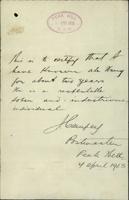 PEAK HILL
This is to certify that I
have known Ah
for about two years
He is a respectable
sober and industrious
individual
Postmaster
Peak Hill
4 April 1903